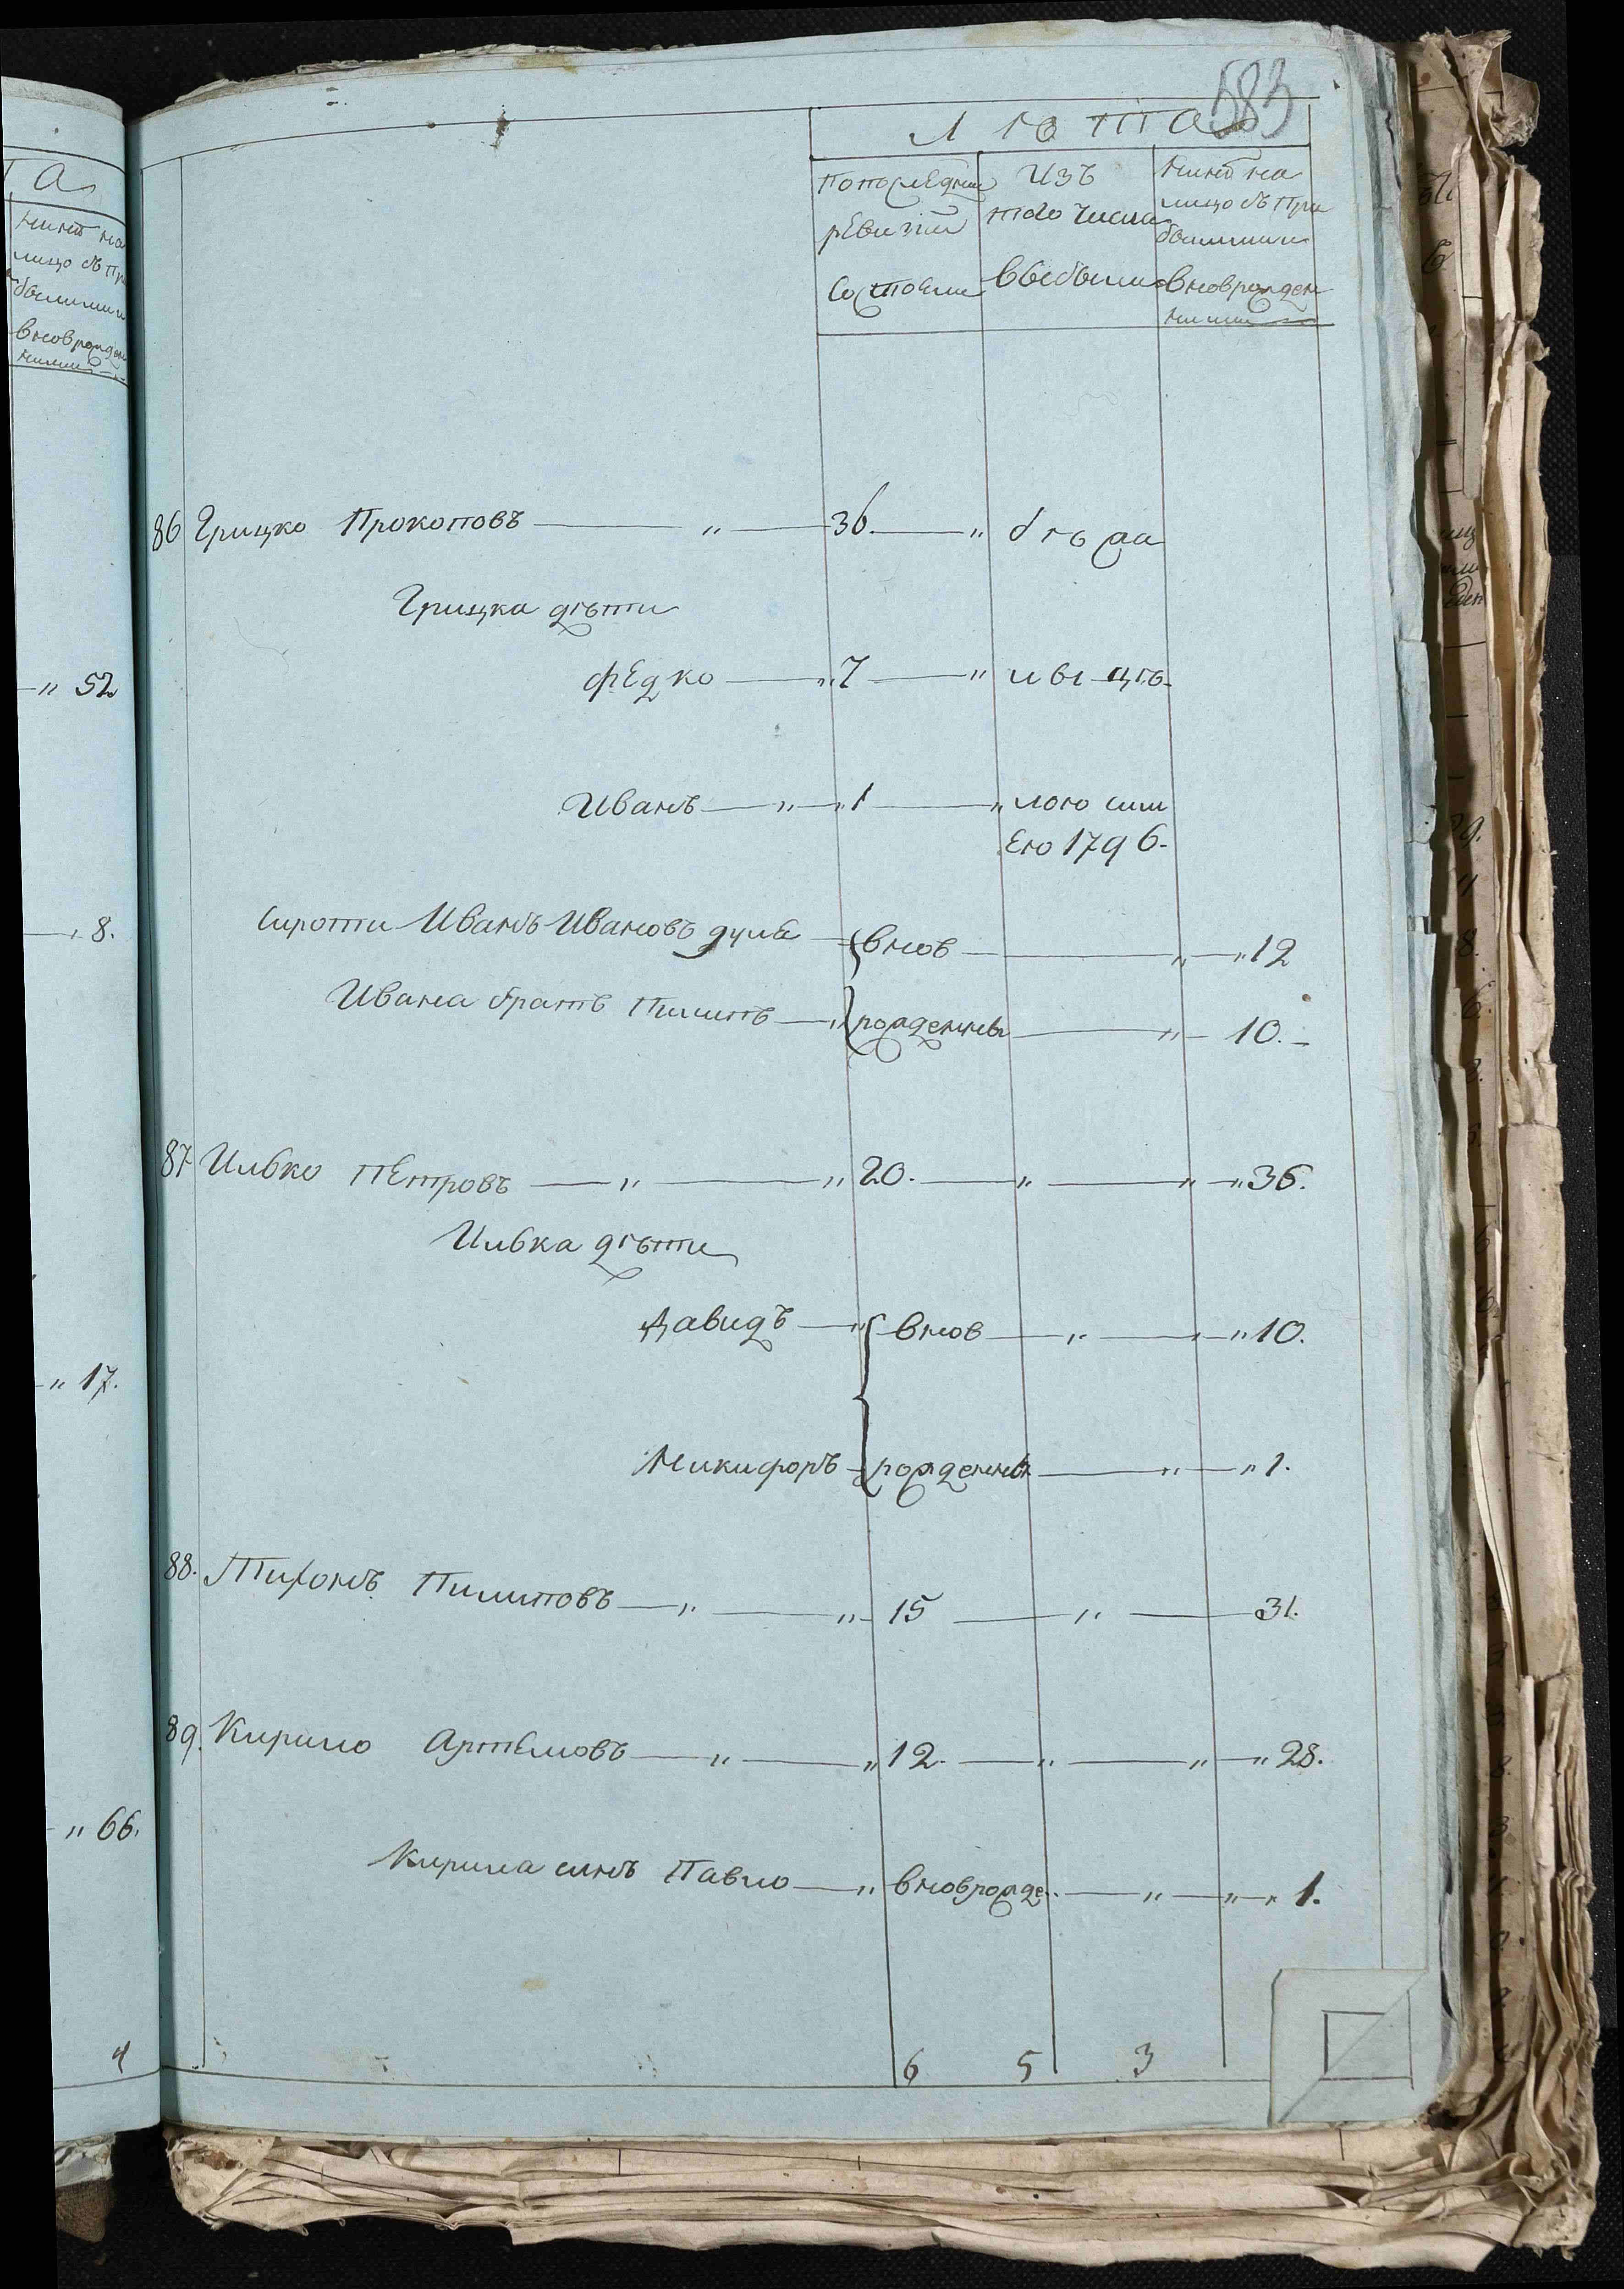 583
ЛѣТА
По последней
ревизіи
состояли
Изъ
того числа
выбыли
Ныне на
лицо съ при
былыми и
вновьрожден
ными
86 Грицко Прокоповъ — " — 36. — " бѣжа
Грицка дѣти
Федко — " 7 — " ли въ цѣ
Иванъ — " — " 1 — " лою сим
ею 1796.
Сироти Иванъ Ивановъ — внов — " — " 12
Ивана братъ Пилипъ — " рожденны — " — 10.
87 Илько Петровъ — " — " 20. — " — " — " 36.
Илька дѣти
Давидъ — " внов — " — " 10.
Никифоръ — рожденны — " — " 1.
88. Тихонъ Пилиповъ — " — " 15 — " — 31.
89. Кирило Артемовъ — " — " 12. — " — " — " 28.
Кирила синъ Павло — " вноврожде.. — " — " — " 1.
6 5 3
ТА
Ныне на
лицо съ при
былыми и
вновърожден
ными
" 52
8.
" 17.
" 66.
4